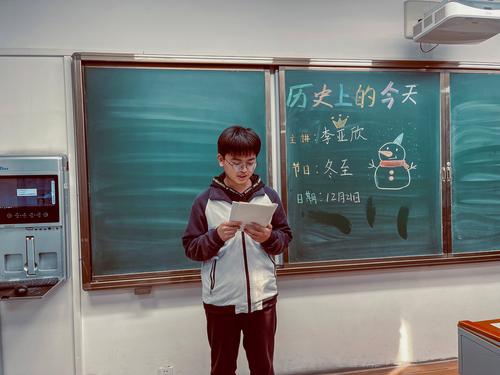 历史上的今天
主讲：李亚欣
节日：冬至
日期：12月21日